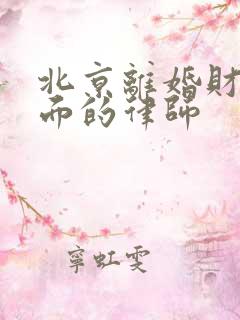 北京離婚財
而的律師
寧虹雯